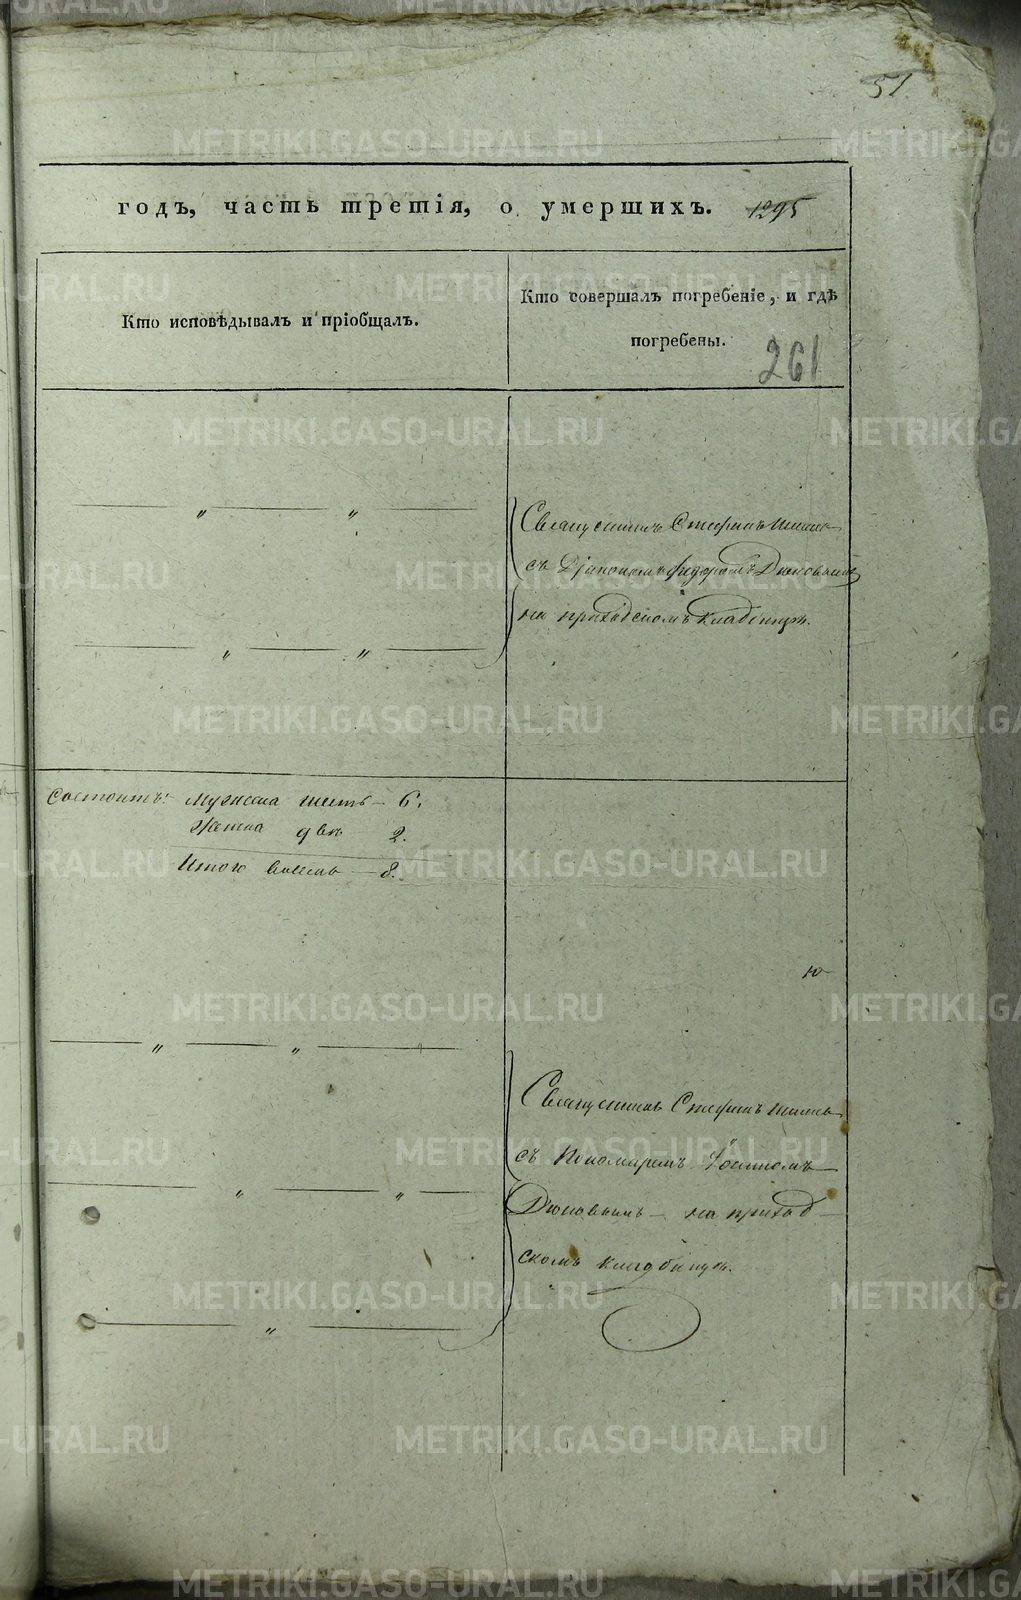 51.
годъ, часть третія, о умершихъ. 1295
Кто исповѣдывалъ и пріобщалъ.
Кто совершалъ погребеніе, и гдѣ
погребены. 261
Священникъ Стефанъ
съ Діякономъ Федоромъ Дюковымъ
на приходскомъ кладбищѣ.
состоитъ: мужеска шесть – 6.
Женска двѣ 2.
Итого восемь – 8.
ю
Священникъ Стефанъ
съ Пономаремъ
Дюковымъ – на приход
скомъ кладбищѣ.
METRIKI.GASO-URAL.RU